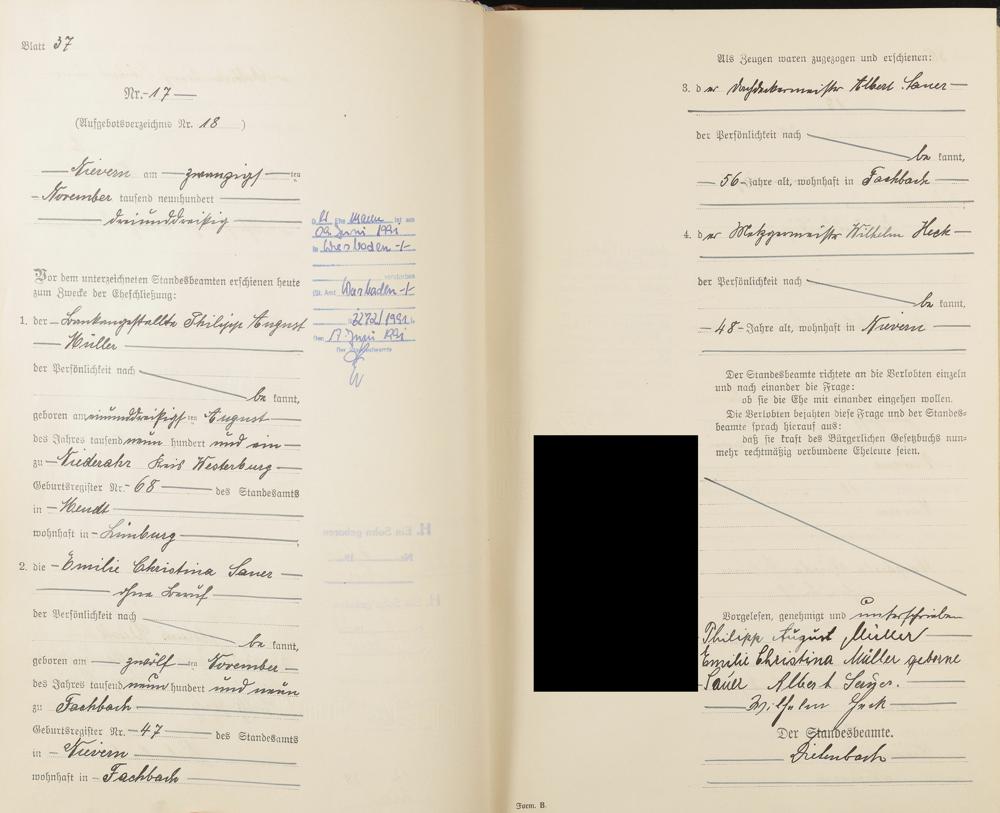 Blatt 37
Nr. 17
(Aufgebotsverzeichnis Nr. 18 )
Nievern am zwanzigsten
November tausend neunhundert
dreiunddreißig
Vor dem unterzeichneten Standesbeamten erschienen heute
zum Zwecke der Eheschließung:
1. der Bankangestellte Philipp August
Müller
der Persönlichkeit nach
be kannt,
geboren am einunddreißigsten August
des Jahres tausend neun hundert und ein
zu Niederahr Kreis Westerburg
Geburtsregister Nr. 68 des Standesamts
in Mendt
wohnhaft in Limburg
2. die Emilie Christina Sauer
ohne Beruf
der Persönlichkeit nach
be kannt,
geboren am zwölf ten November
des Jahres tausend neun hundert und neun
zu Fachbach
Geburtsregister Nr. 47 des Standesamts
in Nievern
wohnhaft in Fachbach
D. Ehemann ist am
09. Juni 1991
in Wiesbaden
verstorben
(St. Amt Wiesbaden
3272/1991
Den 17. Juni 1991
Der Standesbeamte
Als Zeugen waren zugezogen und erschienen:
3. der Dachdeckermeister Albert Sauer
der Persönlichkeit nach
be kannt,
56 Jahre alt, wohnhaft in Fachbach
4. der Metzgermeister Wilhelm Heck
der Persönlichkeit nach
be kannt,
48 Jahre alt, wohnhaft in Nievern
Der Standesbeamte richtete an die Verlobten einzeln
und nach einander die Frage:
ob sie die Ehe mit einander eingehen wollen.
Die Verlobten bejahten diese Frage und der Standes-
beamte sprach hierauf aus:
daß sie kraft des Bürgerlichen Gesetzbuchs nun-
mehr rechtmäßig verbundene Eheleute seien.
Vorgelesen, genehmigt und unterschrieben
Philipp August Müller
Emilie Christina Müller geborne
Sauer Albert Sauer.
Wilhelm Heck
Der Standesbeamte.
Dielenbach
Form. B.